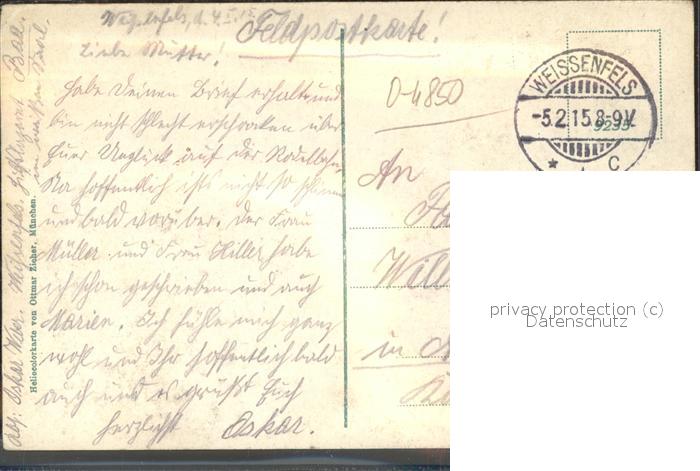 Weißenfels, d. 4.
Feldpostkarte!
Liebe Mutter!
Habe Deinen Brief erhalten und
bin nicht schlecht erschrocken über
Euer Unglück auf der Rodelbahn.
Na hoffentlich ists nicht so schlimm
und bald vorüber. Der Frau
Müller und Frau Hiller habe
ich schon geschrieben und auch
Marien. Ich fühle mich ganz
wohl und Ihr hoffentlich bald
auch und es grüßt Euch
herzlichst Oskar.
0-4850
WEISSENFELS
-5.2.15.8-9V.
* C
9235
An
in
privacy protection (c)
Datenschutz
Heliocolorkarte von Ottmar Zieher, München.
Abs: Oskar